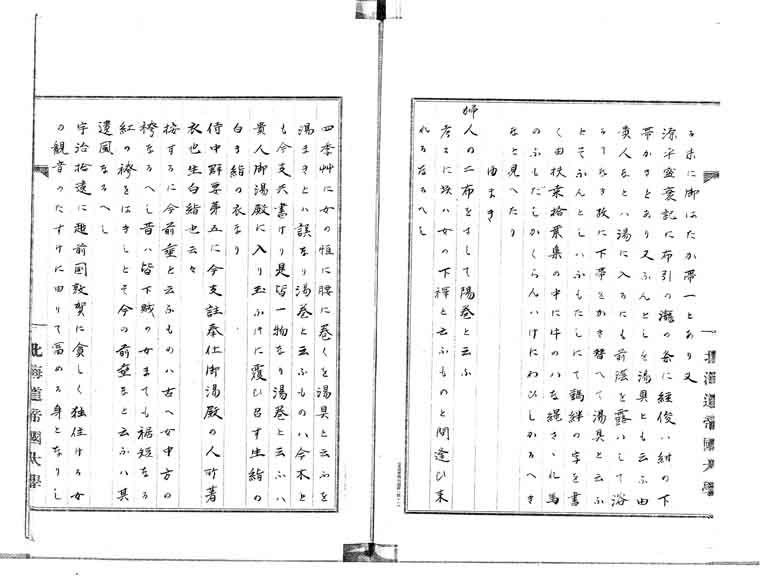 る末に御はたか帯一とあり又
源平盛衰記に布引の瀧の条に経俊ハ紺の下
帯かきとあり又ふんとしを湯具とも云ふ由
貴人などハ湯に入るにも前陰を露ハして浴
せざる故に下帯をかき替へて湯具と云ふ
とぞふんとしといふもたしにて鶴絆の字を書
く由扶桑拾葉集の中に牛のハな縄さゝれ馬
のふもだしかくらんハけにわひしかるへき
など見へたり
ゆまき
婦人の二布をさして陽巻と云ふ
考るに攻ハ女の下裨と云ふものと間違ひ来
れるなるへし
四季艸に女の恒に腰に巻くを湯具と云ふを
湯まきとハ誤なり湯巻と云ふものハ今木と
も今支共書けり是皆一物なり湯巻と云ふハ
貴人御湯殿に入り玉ふ時に覆ひ召す生絹の
白き絹の衣なり
侍中群要第五に今支註奉仕御湯殿の人所著
衣也生白絹也云々
按するに今前垂と云ふものハ古へ女中方の
袴なるへし昔ハ皆下賊の女まても裾短なる
紅の袴をはきしとぞ今の前垂まと云ふハ其
遺風なるへし
宇治拾遺に越前國敦賀に貧しく独住ける女
の観音のたすけに由りて富める身となりし
北海道帝國大學
北海道帝國大學